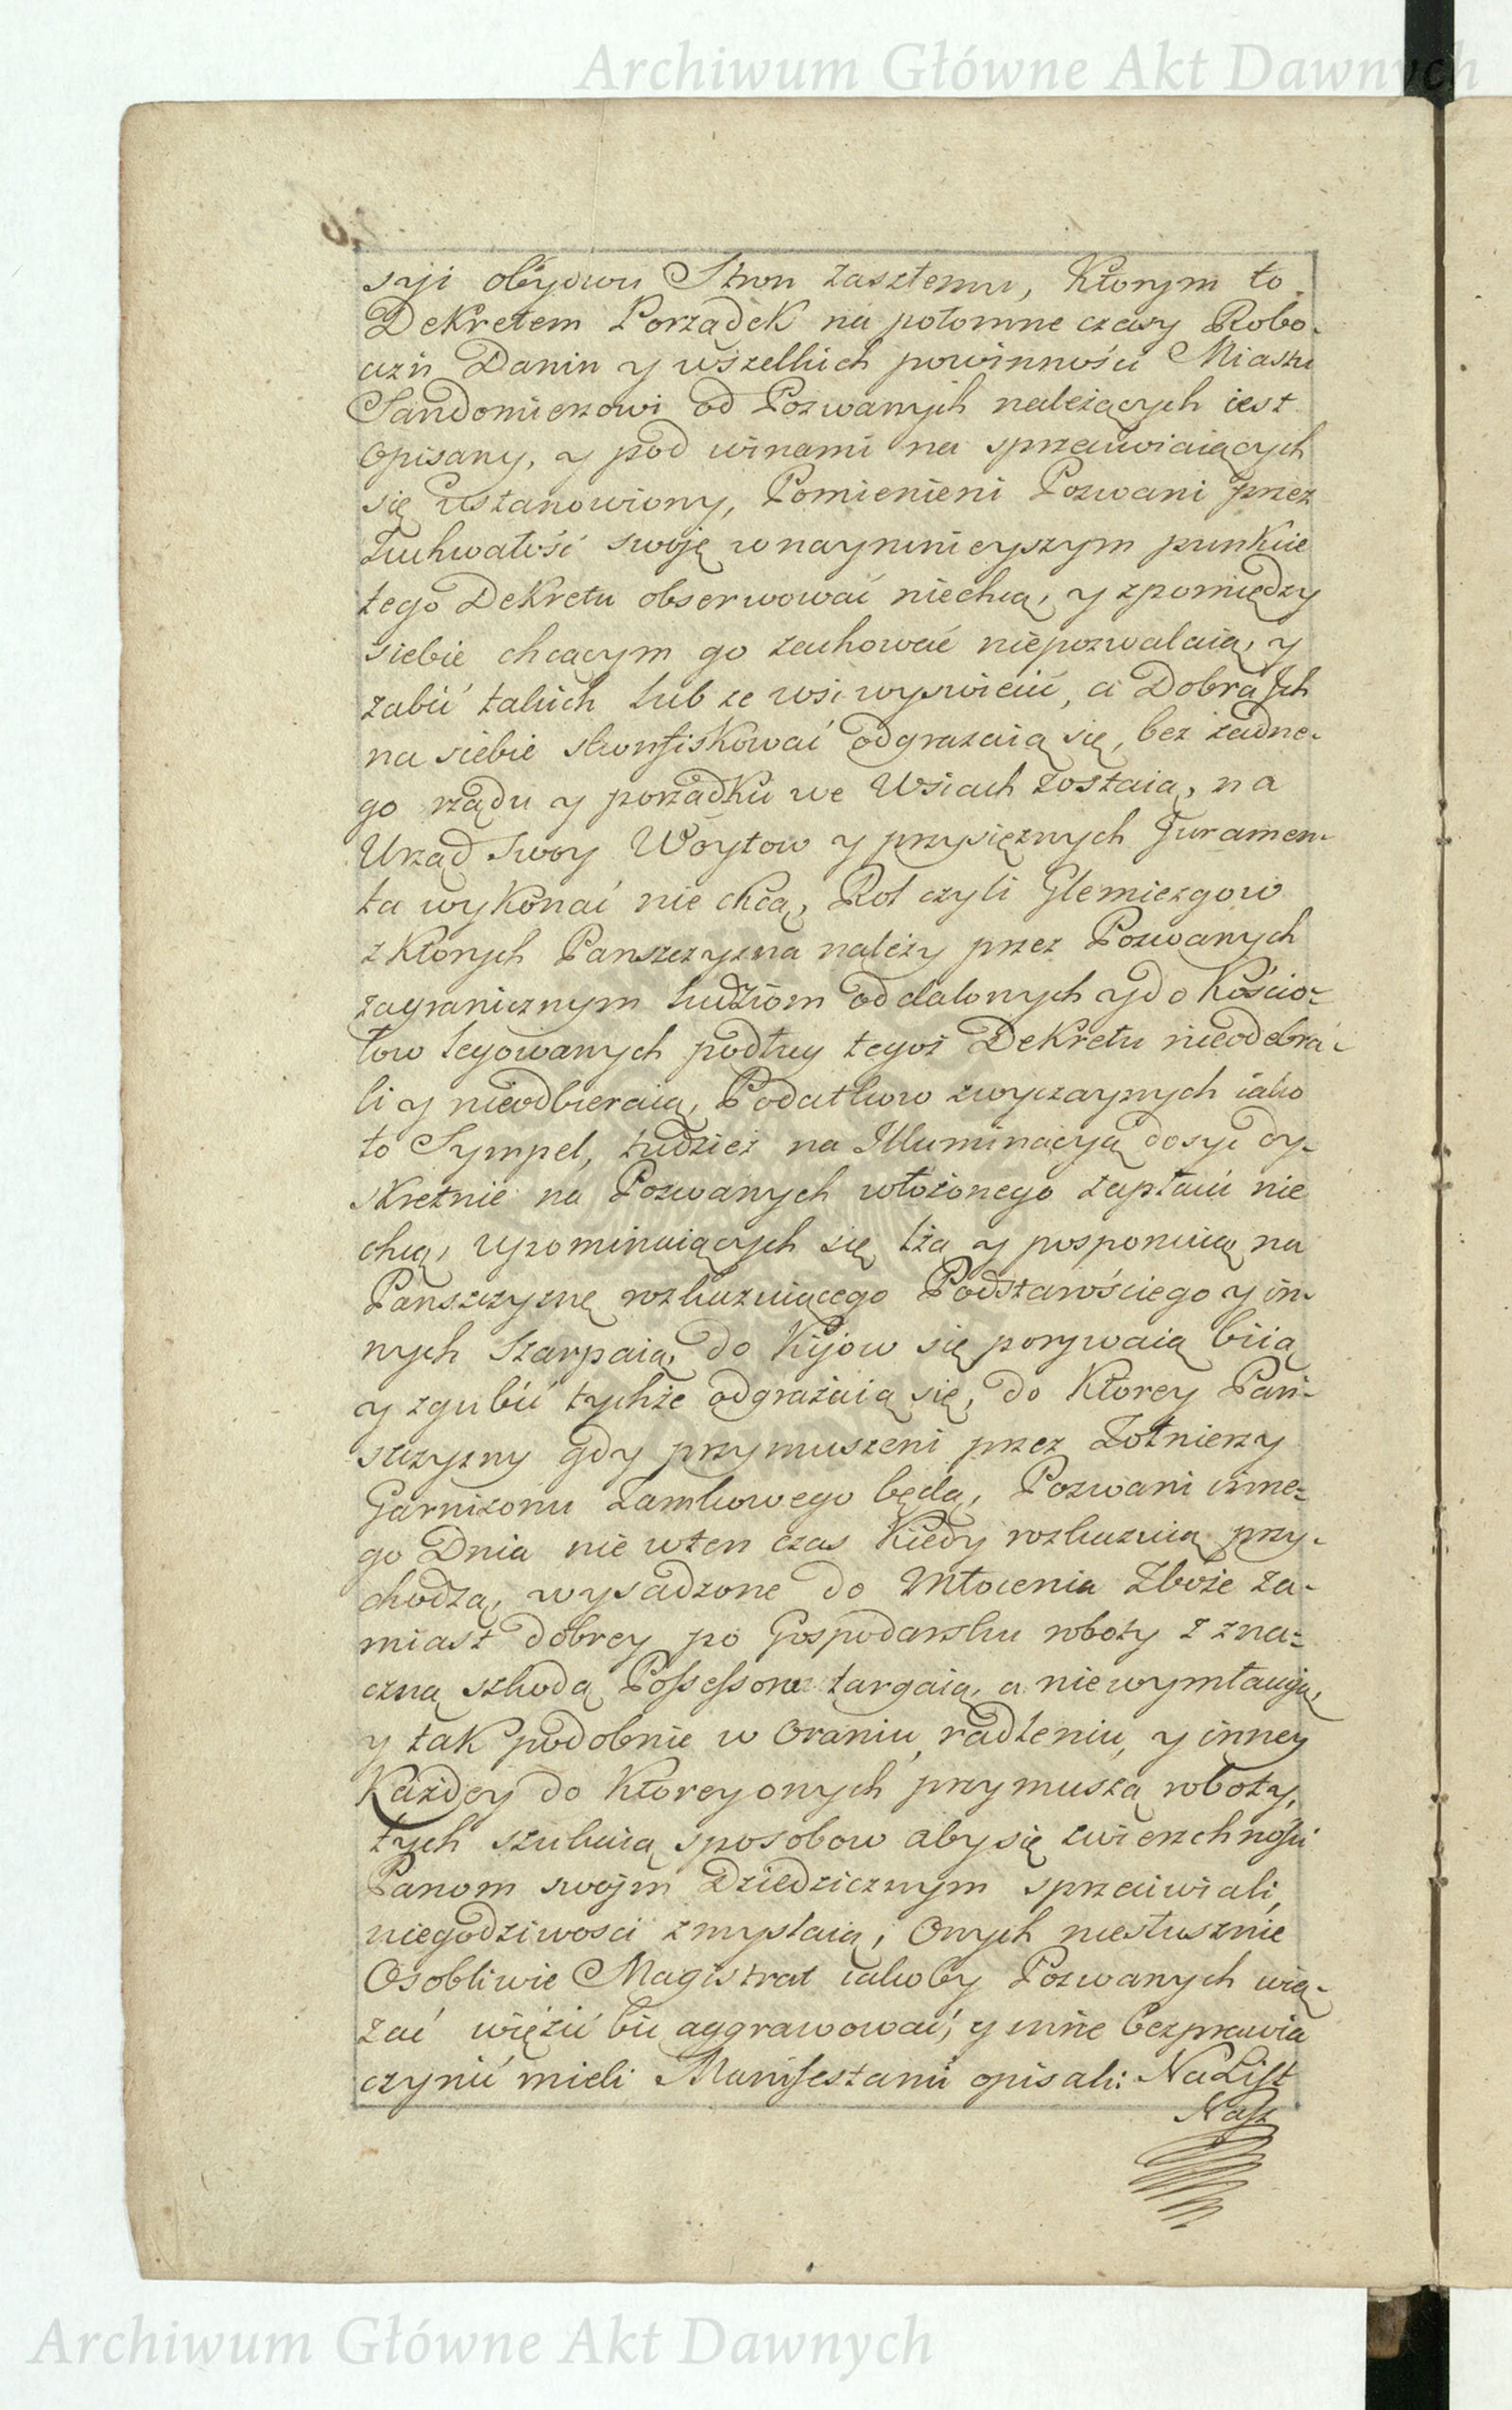 Archiwum Główne Akt Dawnych
syi obydwu Stron zaszłemu, Ktorym to
Dekretem Porządek na potomne czasy Robo-
cizn Danin y wszelkich powinności Miastu
Sandomierzowi od Pozwanych należących iest
opisany, y pod winami na sprzeciwiaiących
się ustanowiony, Pomienieni Pozwani przez
Zuchwałość swoję w naymnieyszym punkcie
tego Dekretu obserwować niechcą, y zpomiędzy
siebie chcącym go zachować niepozwalaią, y
zabić takich lub ze wsi wyświecić, a Dobra Jch
na siebie skonfiskować odgrażaią się, bez żadne-
go rządu y porządku we Wsiach zostaią, na
Urząd Swoy Woytow y przysiężnych Juramen-
ta wykonać nie chcą, Rol czyli Glemiezgow
z Ktorych Panszczyzna należy przez Pozwanych
zagranicznym ludziom oddalonych y do Kościo-
łow legowanych podług tegoż Dekretu nieodebra-
li y nieodbieraią, Podatkow zwyczaynych iako
to Sympel, tudzież na Jlluminacyą dosyć dy-
skretnie na Pozwanych włożonego zapłacić nie
chcą, upominaiących się lżą y posponuią na
Panszczyznę rozkazuiącego Podstarościego y in-
nych Szarpaią, do Kijow się porywaią biią
y zgubić tychże odgrażaią się, do Ktorey Pan-
szczyzny gdy przymuszeni przez Zołnierzy
Garnizonu Zamkowego będą, Pozwani inne-
go Dnia nie wten czas Kiedy rozkazuią przy-
chodzą, wysadzone do Młocenia Zboże za-
miast dobrey po Gospodarsku roboty z zna-
czną szkodą Possessora targaią, a niewymłacuią,
y tak podobnie w oraniu, radleniu, y inney
Każdey do Ktorey onych przymuszą roboty,
tych szukaią sposobow aby się zwierzchności
Panom swoim Dziedzicznym sprzeciwiali,
niegodziwosci zmyslaią, Onych niesłusznie
Osobliwie Magistrat iakoby Pozwanych wią-
zać więzić bić aggrawować, y inne bezprawia
czynić mieli Manifestami opisali: Na List
Nasz
Archiwum Główne Akt Dawnych